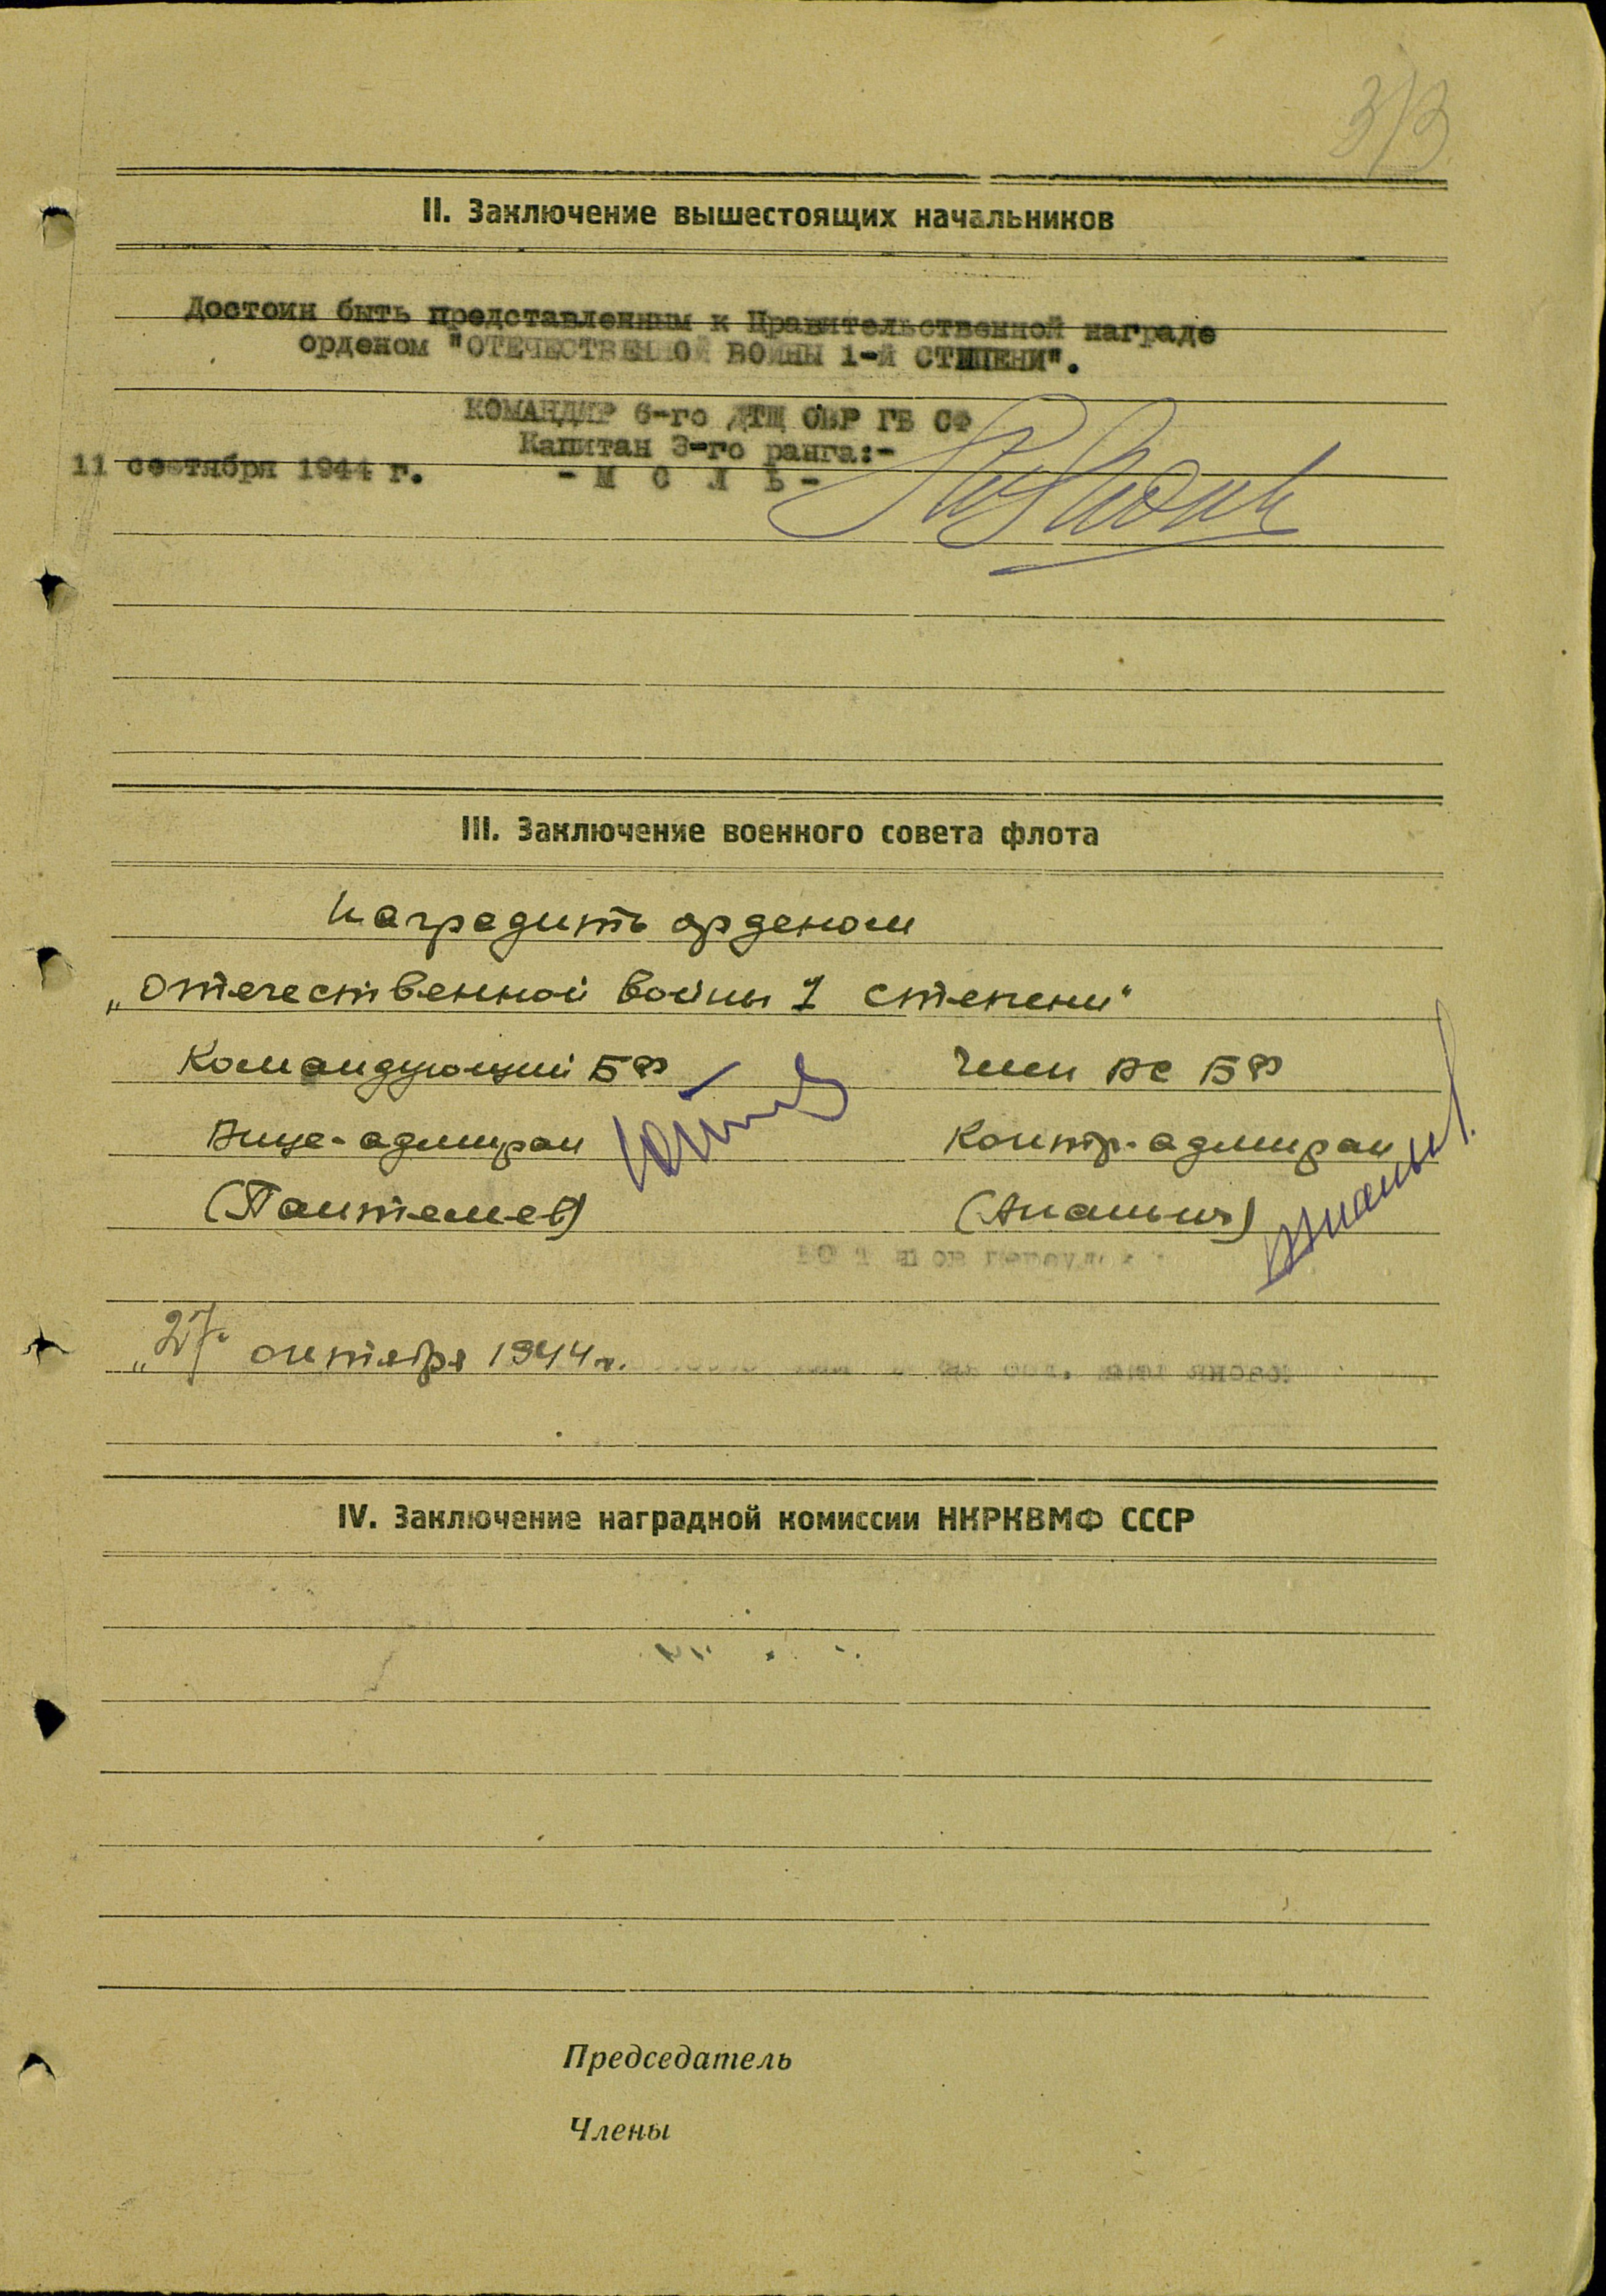 II. Заключение вышестоящих начальников
Достоин быть представленным к Правительственной награде
орденом "ОТЕЧЕСТВЕННОЙ ВОЙНЫ 1-Й СТЕПЕНИ".
КОМАНДИР 6-го ДТЩ ОВР ГБ СФ
Капитан 3-го ранга:-
11 сентября 1944 г.
III. Заключение военного совета флота
Наградить орденом
„Отечественной войны 1 степени"
Командующий БФ
Член ВС БФ
Вице-адмирал
Контр-адмирал
(Пантелеев)
(Ананьич)
„27" октября 1944 г.
IV. Заключение наградной комиссии НКРКВМФ СССР
Председатель
Члены